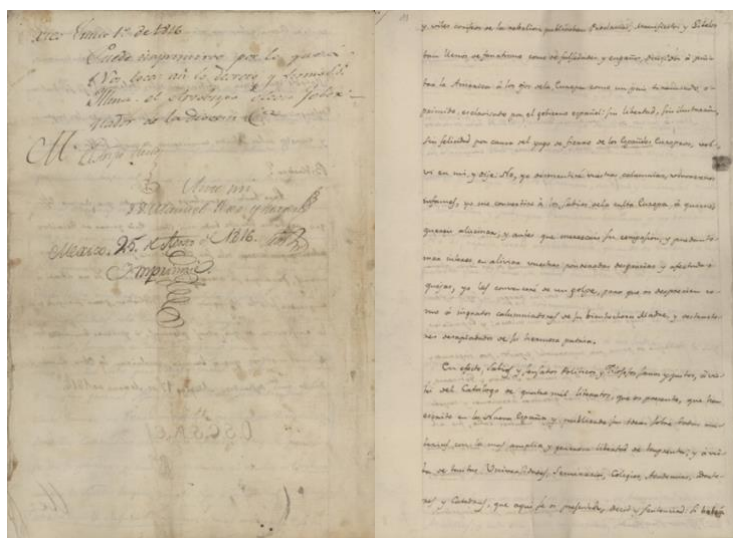 Mexico Enero 1º de 1816
Puede imprimirse por lo que
toca
Illmo. el Arzobispo Electo Gober-
nador de la Diocesis
Ante mi
Mexico 25 de Enero de 1816.
Imprimase.
y viles corifeos de la rebelion publicaban Proclamas, Manifiestos y Libelos
tan llenos de fanatismo como de falsedades y engaños, dirigidos á pin-
tar la America á los ojos de la Europa como un pais tiranizado, o-
primido, esclavizado por el gobierno español: sin libertad, sin ilustracion,
sin felicidad por causa del yugo de fierro de los Españoles Europeos, vol-
ví en mi, y dije: No, yo desmentiré vuestras calumnias,
infames, yo me convertiré á los Sabios de la culta Europa á quienes
quereis alucinar, y antes que merezcais su compasion, y puedan to-
mar interes en aliviar vuestras ponderadas desgracias y afectadas
quejas, yo los convenceré de un golpe, para que os desprecien co-
mo á ingratos calumniadores de su bienhechora Madre, y
de su hermosa patria.
Con efecto, Sabios y sensatos Politicos y Filosofos sanos y justos, á vis-
ta del Catálogo de quatro mil literatos, que os presento, que han
escrito en la Nueva España y publicado sus obras sobre todas ma-
terias con la mas amplia y generosa libertad de Imprenta; y á vis-
ta de tantas Universidades, Seminarios, Colegios, Academias,
y Catedras, que aqui se os presentan, decid y sentenciad: Si